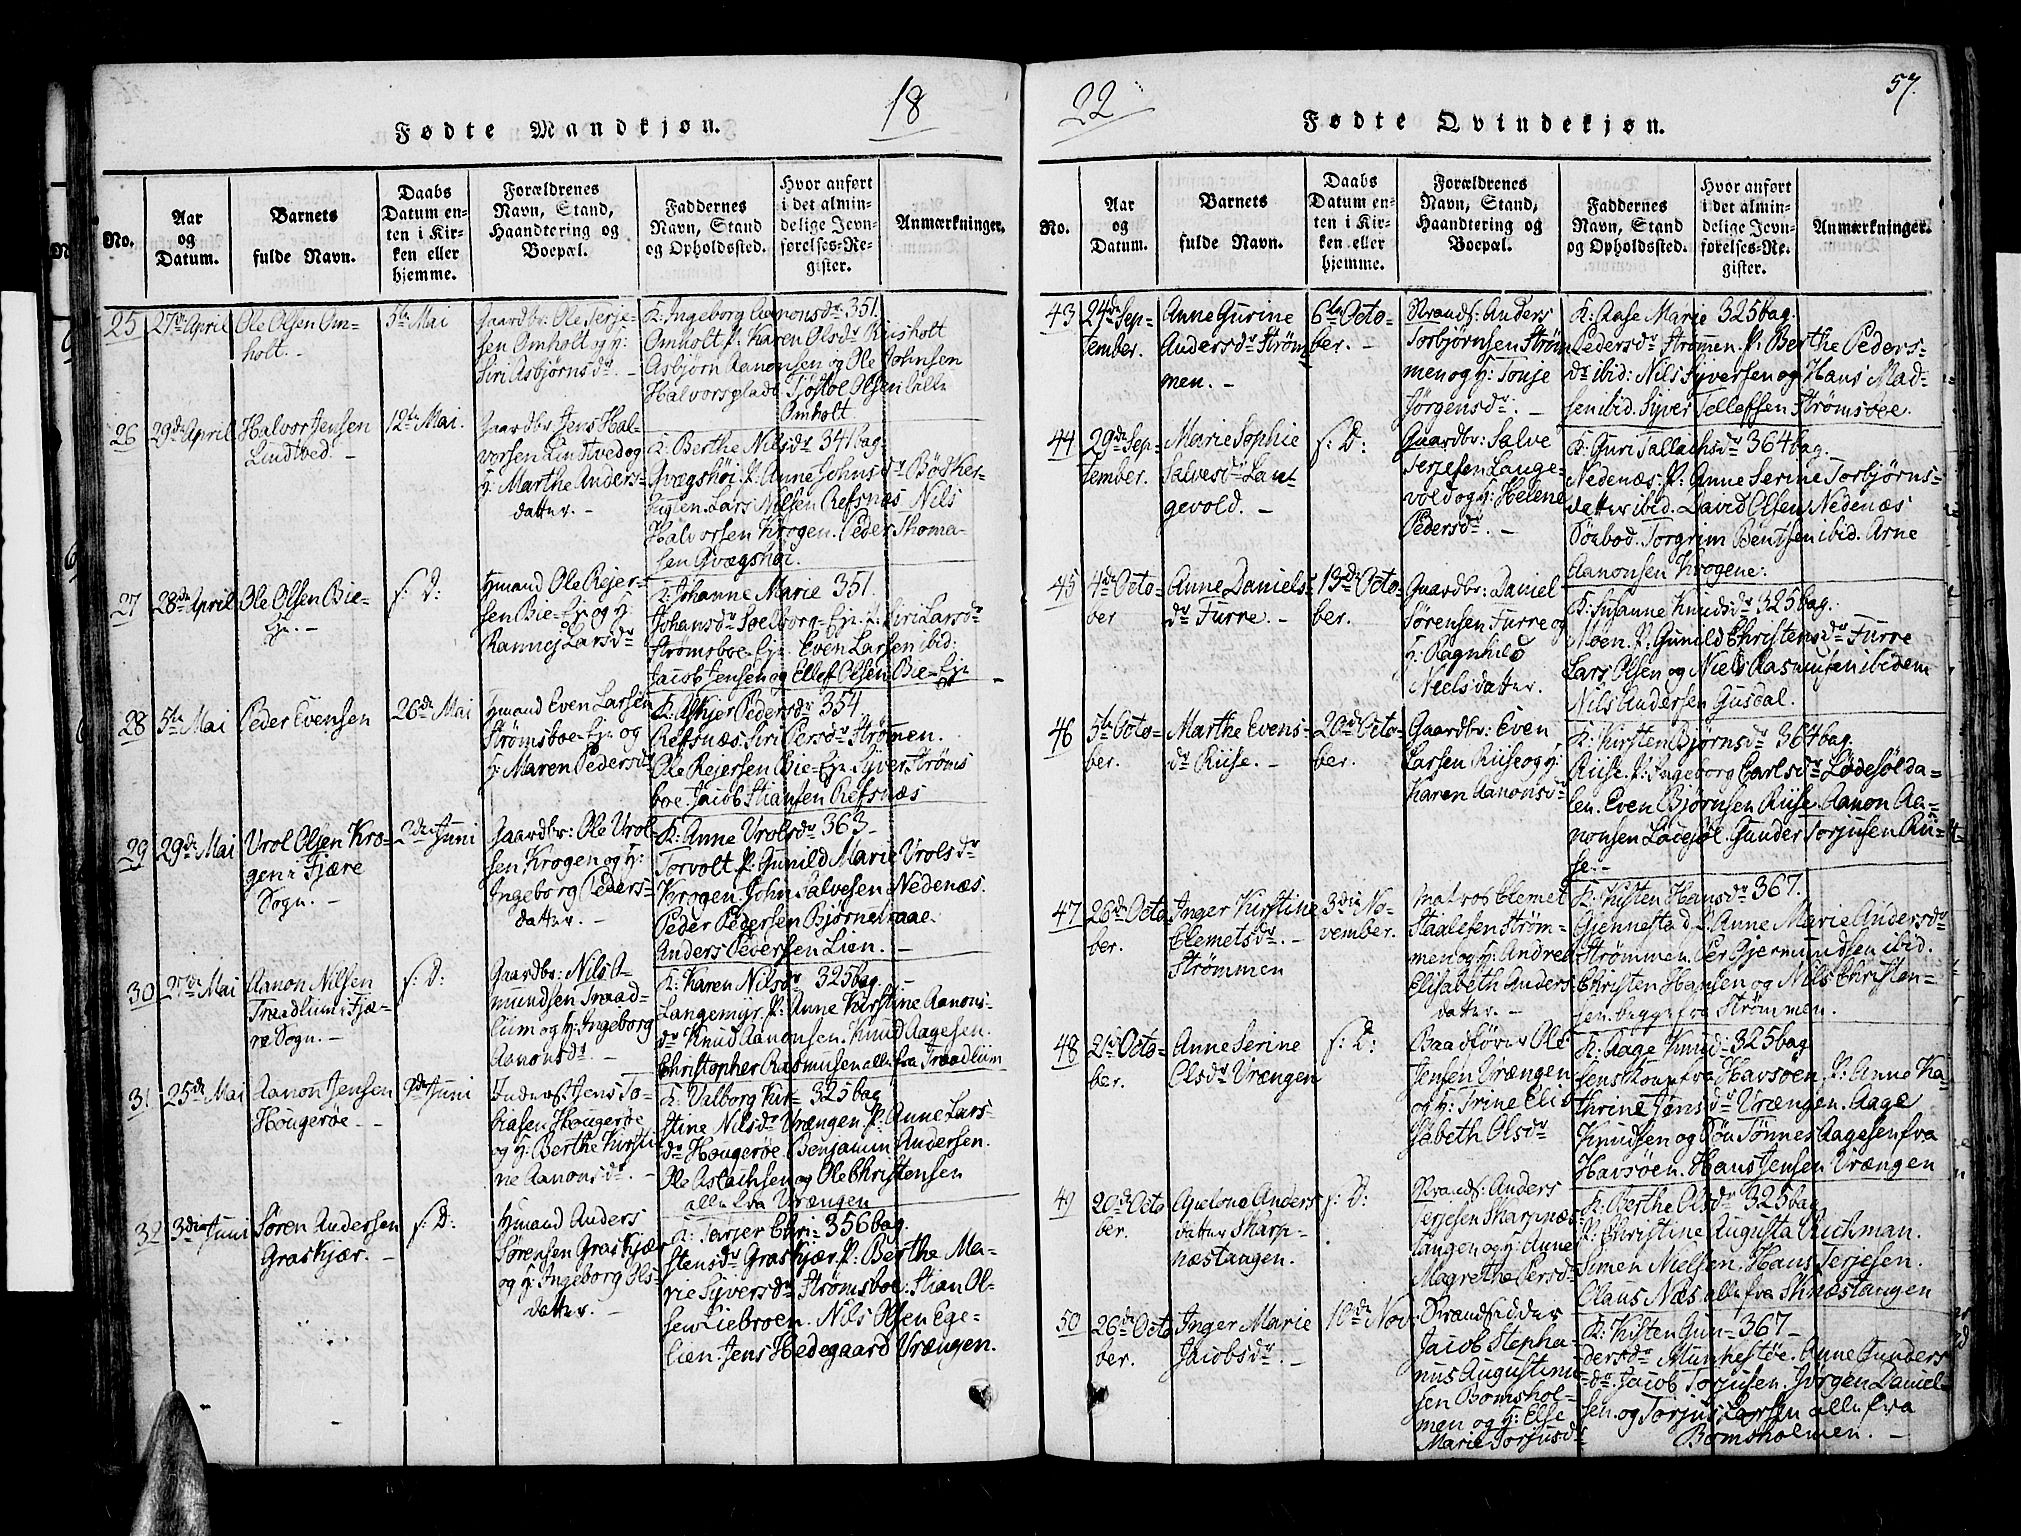 18
Fødte Mandkjøn.
No.
Aar
og
Datum.
Barnets
fulde Navn.
Daabs
Datum en-
ten i Kir-
ken eller
hjemme.
Forældrenes
Navn, Stand,
Haandtering og
Boepæl.
Faddernes
Navn, Stand
og Opholdssted.
Hvor anført
i det almin-
delige Jevn-
førelses-Re-
gister.
Anmærkninger.
25
27de April
Ole Olsen Om-
holt. -
5te Mai
Gaardbr: Ole Terje-
sen Omholt og H:
Siri Asbjørnsdr. -
K: Ingeborg Aanonsdr 351.
Omholt P: Karen Olsdr Riisholt
Asbjørn Aanonsen og Ole Johnsen
Halvorsplads Tostol Olsen Lille
Omholt
26
29de April
Halvor Jensen
Lindtved. -
12te Mai.
Gaardbr Jens Hal-
vorsen Lindtved og
H: Marthe Anders-
datter. -
K: Berthe Nilsdr 341 bag.
Gvagshøi. P: Anne Johnsdr Bøsker-
Lars Nilsen Refsnæs Nils
Halvorsen Krogen. Peder Thoma-
sen Gvagshøi.
27
28de April
Ole Olsen Bie-
Ejn. -
s: D:
Hmand Ole Rejer-
sen Bie-Ejn og H:
Rannej Larsdr
K: Johanne Marie 351.
Johansdr Soelborg-Ejn. P: Siri Larsdr
Strømsboe-Ejn Even Larsen ibid:
Jacob Jensen og Ellef Olsen Bie-Ejn
28
5te Mai
Peder Evensen
26de Mai
Hmand Even Larsen
Strømsboe-Ejn og
H: Maren Pedersdr
K: Askjer Pedersdr 354
Refsnæs. Siri Persdr Strømen.
Ole Rejersen Bie-Ejn Syver Strøms
boe. Jacob Stiansen Refsnæs
29
29de Mai
Vrol Olsen Kro-
gen i Fjære
Sogn. -
2den Juni
Gaardbr: Ole Vrol-
sen Krogen og H:
Ingeborg Peders-
datter. -
K: Anne Vrolsdr 363 -
Torvolt P: Gunild Marie Vrolsdr
Krogen. John Salvesen Nedenæs.
Peder Pedersen Bjørnebraae.
Anders Pedersen Lien. -
30
Mai
Aanon Nilsen
Traadlium i Fjæ-
re Sogn. -
s: D:
Gaardbr: Nils A-
mundsen Traad-
lium og H: Ingeborg
Aanonsdr. -
K: Karen Nilsdr 325 bag. -
Langemyr. P: Anne Kirstine Aanons-
dr Knud Aanonsen. Knud Aagesen.
Christopher Rasmusen alle fra Traadlium
31
25de Mai
Aanon Jensen
Hougerøe - -
2den Juni
Inderst Jens To-
biasen Hougerøe
og H: Berthe Kirsti-
ne Aanonsdr. -
K: Valborg Kir- 325 bag
stine Nilsdr Vrængen P: Anne Lars-
dr Hougerøe. Benjamin Andersen.
Ole Aslachsen og Ole Christensen
alle fra Vrængen
32
3die Juni
Søren Andersen
Graskjær. -
s: D:
Hmand Anders
Sørensen Graskjær
og H: Ingeborg Ols-
datter. -
K: Tarjer Chri- 356 bag.
stensdr Graskjær. P: Berthe Ma-
rie Syversdr Strømsboe. Stian Ol-
sen Liebroen. Nils Olsen Ege-
lien. Jens Hedegaard Vrængen.
22
57.
Fødte Qvindekjøn.
No.
Aar
og
Datum.
Barnets
fulde Navn.
Daabs
Datum en-
ten i Kir-
ken eller
hjemme.
Forældrenes
Navn, Stand,
Haandtering og
Boepæl.
Faddernes
Navn, Stand
og Opholdssted.
Hvor anført
i det almin-
delige Jevn-
førelses-Re-
gister.
Anmærkninger.
43
24de Sep-
tember.
Anne Gurine
Andersdr Strøm-
men. -
6te Octo-
ber. -
Strands: Anders
Torbjørnsen Strøm
men og H: Tonje
Jørgensdr. -
K: Aase Marie 325 bag.
Pedersdr Strømmen. P: Berthe Peders-
dr ibid: Nils Syversen og Hans Mad-
sen ibid. Syver Tellefsen Strømsboe.
44
29de Sep-
tember.
Marie Sophie
Salvesdr Lan-
gevold. -
s: D:
Gaardbr: Salve
Terjesen Lange-
vold og H: Helene
Pedersdr. -
K: Guri Tallachsdr 364 bag.
Nedenæs. P: Anne Serine Torbjørns-
datter ibid. David Olsen Nedenæs
Torgrim Bentsen ibid. Arne
Aanonsen Krogene.
45
4de Octo-
ber
Anne Daniels-
dr Furre. -
13de Octo-
ber.
Gaardbr: Daniel
Sørensen Furre og
H: Ragnhild
Nielsdatter.
K: Susanne Knudsdr 325 bag.
Moen. P: Gunild Christensdr Furre
Lars Olsen og Niels Rasmusen ibidem
Nils Andersen Gusdal.
46
5te Octo-
ber.
Marthe Evens-
dr Riise. -
20de Octo-
ber.
Gaardbr: Even
Larsen Riise og H:
Karen Aanonsdr
K: Kirsten Bjørnsdr 364 bag.
Riise. P: Ingeborg Carlsdr Lødesølda-
len. Even Bjørnsen Riise Aanon Aa-
nonsen Gunder Torjusen Rii-
se. -
47
26de Octo
ber.
Inger Kirstine
Clemetsdr. -
Strømmen
3die No-
vember.
Matros Clemet
Staalesen Strøm-
men og H: Andrea
Elisabeth Anders
datter. -
K: Kisten Hansdr 367.
Gjennestad. P: Anne Marie Andersdr
Strømmen. Per Gjermundsen ibid.
Christen Hansen og Nils Christen-
sen begge fra Strømmen.
48
21de Octo-
ber.
Anne Serine
Olsdr Vrængen
s: D:
Baadfører Ole
Jensen Vrængen
og H: Trine Eli-
sabeth Olsdr
K: Aage Knud- 325 bag
sens Kone fra Havsøen. P: Anne Ka-
thrine Jansdr Vrængen. Aage
Knudsen og Søn Tønnes Aagesen fra
Havsøen. Hans Jensen Vrængen
49
20de Octo
ber.
Anders
datter Skarp-
næstangen.
s: D:
Strands: Anders
Terjesen Skarpnæs-
tangen og H: Anne
Magrethe Persdr
K: Berthe Olsdr 325 bag
P: Christine Augusta Richman.
Simen Nielsen. Hans Terjesen.
Claus Næs alle fra Sknæstangen
50
26de Octo
ber.
Inger Marie
Jacobsdr. -
10de Nov-
Strandsidder
Jacob Stepha-
nus Augustinu-
sen Bomshol-
men og H: Else
Marie Torjusdr
K: Kisten Gun- 367 -
dersdr Munkestøe. Anne Gunders
dr. Jacob Torjusen. Jørgen Daniel-
sen og Torjus Larsen alle fra
Bomsholmen. -